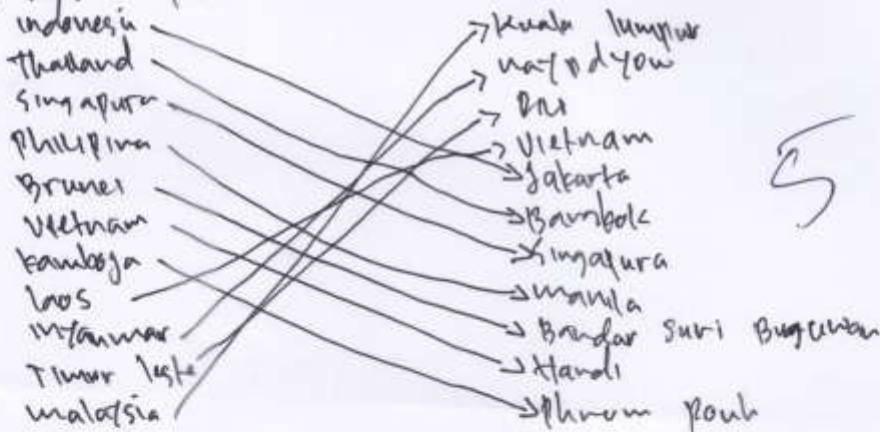 indonesia
Thailand
Singapura
Philipina
Brunei
Vietnam
Kamboja
laos
Myanmar
Timur leste
malaysia
Kuala lumpur
naypdyow
Dili
Vietnam
Jakarta
Bambok
Singapura
manila
Bandar Suri Bugewan
Hanoi
Phnom Penh
5